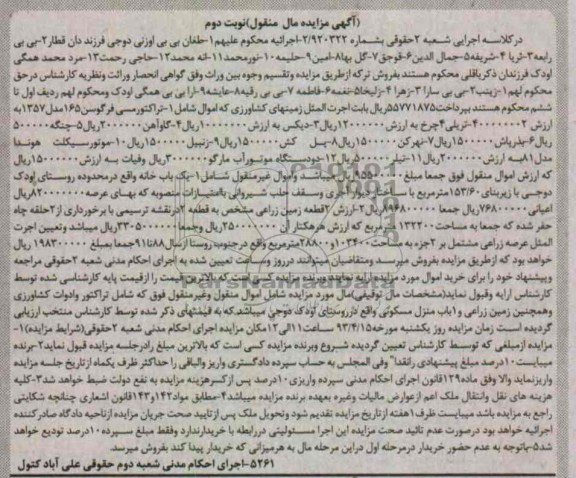 (آگهی مزایده مال منقول)نوبت دوم
درکلاسه اجرایی شعبه ۲حقوقی بشماره ۲/۹۲۰۳۲۲-اجرائیه محکوم علیهم۱-طغان بی بی اوزنی دوجی فرزند دان قطار۲-بی بی
رابعه۳-ثریا ۴-شریفه۵-جمال الدین۶-قوجق۷-گل بها۸-امین۹-حلیمه۱۰-نورمحمد۱۱-انه محمد۱۲-حاجی رحمت۱۳-مرد محمد همگی
اودک فرزندان ذکریاقلی محکوم هستند بفروش ترکه ازطریق مزایده وتقسیم وجوه بین وراث وفق گواهی انحصار وراثت ونظریه کارشناس درحق
محکوم لهم۱-زینب۲-حی بی سارا ۳-زهرا ۴-زلیخا۵-نغمه۶-فاطمه ۷-بی بی رقیه۸-عایشه۹-ارا بی بی همگی اودک ومحکوم لهم ردیف اول تا
ششم محکوم هستند بپرداخت۵۵۷۷۱۸۷۵ریال بابت اجرت المثل زمینهای کشاورزی که اموال شامل۱-تراکتورمسی فرگوسن۱۶۵مدل۱۳۵۷به
ارزش ۲-تریلی۴چرخ به ارزش ریال۳-دیکس به ارزش ریال۴-گاوآهن ریال۵-چنگه
ریال۶-بذرپاش ریال۷-نهرکن ریال۸-پل کش ریال۹-زنبیل ریال۱۰-موتورسیکلت هوندا
مدل۸۱به ارزش ریال۱۱-تیلر ریال۱۲-دودستگاه موتورآب مارکو ریال وفیات به ارزش ریال
که ارزش اموال منقول فوق جمعا مبلغ ریال میباشد واموال غیرمنقول شامل۱-یک باب خانه واقع درمحدوده روستای اودک
دوجی با زیربنای۱۵۳/۶۰مترمربع با دیوار آجری وسقف حلب شیروانی باامتیازات منصوبه که بهای عرصه ریال
اعیانی ریال جمعا ریال۲-ارزش ۲قطعه زمین زراعی مشخص به قطعه ۲درنقشه ترسیمی با برخورداری از۲حلقه چاه
حفر شده که جمعا به مساحت۱۳۲۲۰۰ مترمربع که ارزش هرهکتار آن ریال وجمعا ریال میباشد وتعیین اجرت
المثل عرصه زراعی مشتمل بر ۲جزء به مساحت۱۰۳۴۰۰و۲۸۸۰۰مترمربع واقع درجنوب روستا ازسال۸۸تا۹۱جمعا بمبلغ ریال
خواهد بود که ازطریق مزایده بفروش میرسد ومتقاضیان میتوانند درروز وساعت تعیین شده به اجرای احکام مدنی شعبه ۲حقوقی مراجعه
وپیشنهاد خود را برای خرید اموال مورد مزایده ارایه نمایند وبرنده مزایده کسی است که بالاترین قیمت را ازقیمت پایه کارشناسی شده توسط
کارشناس ارایه وقبول نماید(مشخصات مال توقیفی)مال مورد مزایده شامل اموال منقول وغیرمنقول فوق که شامل تراکتور وادوات کشاورزی
وهمچنین زمین زراعی و۱باب منزل مسکونی واقع درروستای اودک دوجی میباشد.که به قیمتهای ذکر شده توسط کارشناس منتخب ارزیابی
گردیده است زمان مزایده روز یکشنبه مورخه۹۳/۴/۱۵ ساعت۱۱الی۱۲مکان مزایده اجرای احکام مدنی شعبه ۲حقوقی(شرایط مزایده)۱-
مزایده ازمبلغی که توسط کارشناس تعیین گردیده شروع وبرنده مزایده کسی است که بالاترین مبلغ رادرجلسه مزایده قبول نماید۲-برنده
میبایست۱۰درصد مبلغ پیشنهادی رانقدا" وفی المجلس به حساب سپرده دادگستری واریز والباقی را حداکثر ظرف یکماه ازتاریخ جلسه مزایده
واریزنماید والا وفق ماده۱۲۹قانون اجرای احکام مدنی سپرده واریزی۱۰درصد پس ازکسرهزینه مزایده به نفع دولت ضبط خواهد شد۳-کلیه
هزینه های نقل وانتقال ملک اعم ازعوارض مالیات وغیره بعهده برنده مزایده میباشد۴-مطابق مواد۱۴۲و۱۴۳قانون اشعاری چنانچه شکایتی
راجع به مزایده باشد میبایست ظرف۱هفته ازتاریخ مزایده تقدیم شود وتحویل ملک پس ازتایید صحت جریان مزایده ازناحیه دادگاه صادرکننده
اجرائیه خواهد بود درصورت عدم تائید صحت مزایده این اجرا مسئولیتی دررابطه با خریدارندارد وفقط مبلغ سپرده ۱۰درصد تودیع خواهد
شد۵-باتوجه به عدم حضور خریدار درمرحله اول دراین مرحله مال به هرمیزانی که خریدار پیدا کند بفروش میرسد.
۵۲۶۱-اجرای احکام مدنی شعبه دوم حقوقی علی آباد کتول